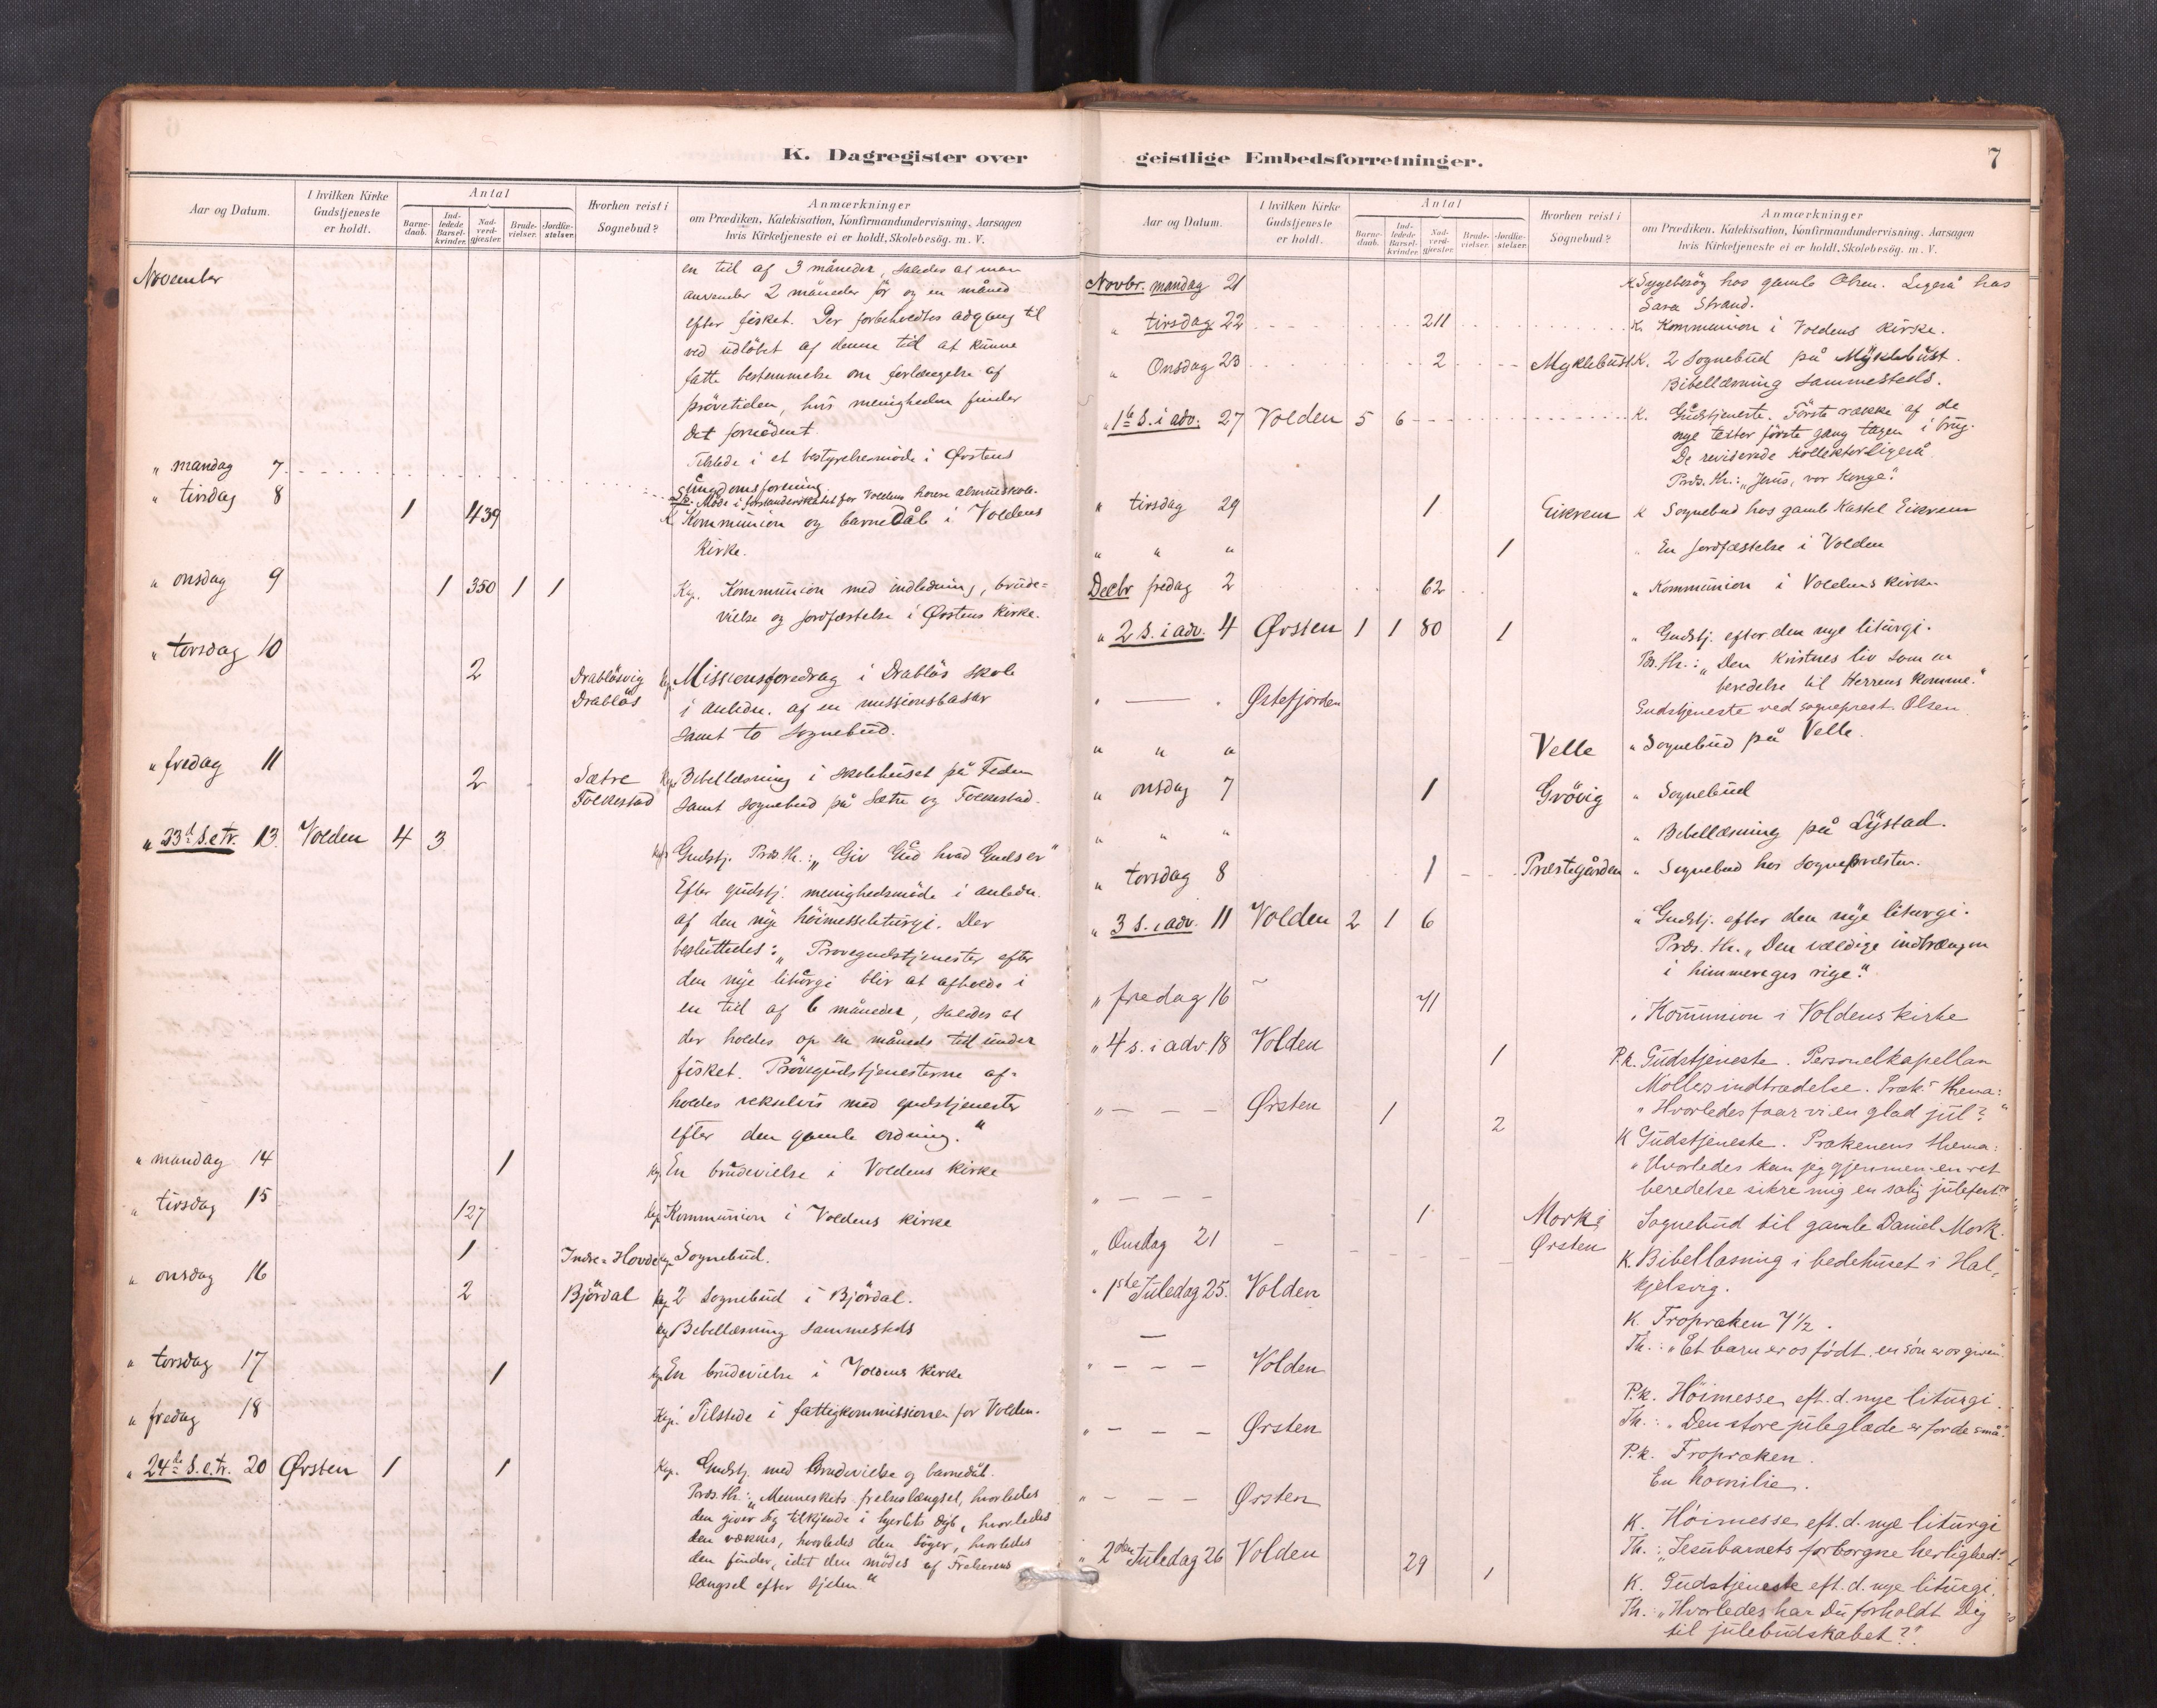 K. Dagregister over
Aar og Datum.
I hvilken Kirke Gudstjeneste er holdt.
Antal
Barnedaab.
Indledede Barselkvinder.
Nadverdgjester.
Brudevielser.
Jordfæstelser.
Hvorhen reist i Sognebud?
Anmærkninger
om Prædiken, Katekisation, Konfirmandundervisning, Aarsagen
hvis Kirketjeneste ei er holdt, Skolebesög. m. V.
November
en tid af 3 måneder, således at man
anvender 2 måneder för og en måned
efter fisket. Der forbeholdtes adgang til
ved udlöbet af denne tid at kunne
fatte bestemmelse om forlængelse af
prövetiden, hvis menigheden finder
det fornödent.
" mandag 7. Tilstede i et bestyrelsesmöde i Örstens
Ungdomsforening
" tirsdag 8 Möde i forstanderskabet for Voldens höiere almueskole.
1 439 K Kommunion og barnedåb i Voldens
Kirke.
" onsdag 9 1 350 1 1 Kap. Kommunion med indledning, brude-
vielse og jordfæstelse i Ørstens kirke.
" torsdag 10 2 Drablösvig Kap. Missionsforedrag i Drablös skole
Drablös i anledn. af en missionsbasar
samt to sognebud.
" fredag 11 2 Sætre Kap. Bibellæsning i skolehuset på
Folkestad samt sognebud på Sætre og Folkestad.
" 23d S.e.tr. 13. Volden 4 3 Kap. Gudstj. Præs. th.: "Giv Gud hvad Guds er"
Efter gudstj. menighedsmöde i anledn.
af den nye höimesseliturgi. Der
besluttedes: "Prövegudstjenester efter
den nye liturgi blir at afholde i
en tid af 6 måneder, således at
der holdes op en måneds tid under
fisket. Prövegudstjenesterne af-
holdes vekselvis med gudstjenester
efter den gamle ordning."
" mandag 14 1 Kap. En brudevielse i Voldens kirke
" tirsdag 15 127 Kap. Kommunion i Voldens kirke
1 Indre-Hovde Kap. Sognebud.
" onsdag 16 2 Björdal Kap. 2 sognebud i Björdal.
Kap. Bibellæsning sammesteds
" torsdag 17 1 Kap. En brudevielse i Voldens kirke
" fredag 18 Kap. Tilstede i fattigkommissionen for Volden.
" 24de S.e.tr. 20 Ørsten 1 1 Kap. Gudstj. med brudevielse og barnedåb.
Præs. th.: "Menneskets frelseslængsel, hvorledes
den giver sig tilkjende i hjertets dyb, hvorledes
den vækkes, hvorledes den söger, hvorledes
den finder, idet den mödes af Frelserens
længsel efter sjelen"
geistlige Embedsforretninger.
7
Aar og Datum.
I hvilken Kirke Gudstjeneste er holdt.
Antal
Barnedaab.
Indledede Barselkvinder.
Nadverdgjester.
Brudevielser.
Jordfæstelser.
Hvorhen reist i Sognebud?
Anmærkninger
om Prædiken, Katekisation, Konfirmandundervisning, Aarsagen
hvis Kirketjeneste ei er holdt, Skolebesög. m. V.
Novbr. mandag 21 K Sygebesög hos gamle Olsen. Ligeså hos
Sara Strand.
" tirsdag 22 211 K. Kommunion i Voldens kirke.
" Onsdag 23 2 Myklebust K. 2 sognebud på Myklebust.
Bibellæsning sammesteds.
" 1ste S. i adv. 27 Volden 5 6 K. Gudstjeneste. Förste række af de
nye texter förste gang tagen i brug.
De reviderede kollekter ligeså.
Præs. th.: "Jesus, vor Konge."
" tirsdag 29 1 Eikrem K Sognebud hos gamle Eikrem
" " " 1 " En jordfæstelse i Volden
Decbr fredag 2 62 " Kommunion i Voldens kirke
" 2 S. i adv. 4 Ørsten 1 1 80 1 " Gudstj. efter den nye liturgi.
Præs. th.: "Den kristnes liv som en
beredelse til Herrens komme."
" — " Østefjorden Gudstjeneste ved sogneprest Olsen
" " " Velle " Sognebud på Velle.
" onsdag 7 1 Grövig " Sognebud
" " " " Bibellæsning på Lystad.
" torsdag 8 1 Præstegården " Sognebud hos sognepræsten.
" 3 S. i adv. 11 Volden 2 1 6 " Gudstj. efter den nye liturgi.
Præs. th. "Den vældige indtrængen
i himmeriges rige."
" fredag 16 71 " Kommunion i Voldens kirke
" 4 s. i adv 18 Volden 1 P.k. Gudstjeneste. Personelkapellan
Möllers indtrædelse. Præk. thema:
"Hvorledes faar vi en glad jul?"
" — — — Ørsten 1 2 K Gudstjeneste. Prækenens thema:
"Hvorledes kan jeg gjennem en ret
beredelse sikre mig en salig julefest?"
" — — — 1 Mork i Sognebud til gamle Daniel Mork.
Ørsten
" Onsdag 21 K. Bibellæsning i bedehuset i Hal-
kjelsvig.
" 1ste Juledag 25. Volden K. Fropræken 7½.
Th.: "Et barn er os födt, en sön er os given"
" — — — Volden P.k. Höimesse eft. d. nye liturgi.
Th.: "Den store juleglæde er for de små."
" — — — Ørsten P.k. Fropræken.
En homilie.
" — — — Ørsten K. Höimesse eft. d. nye liturgi
Th.: "Jesubarnets forborgne herlighed."
" 2den Juledag 26 Volden 29 1 K. Gudstjeneste eft. d. nye liturgi.
Th. "Hvorledes har Du forholdt Dig
til julebudskabet?"